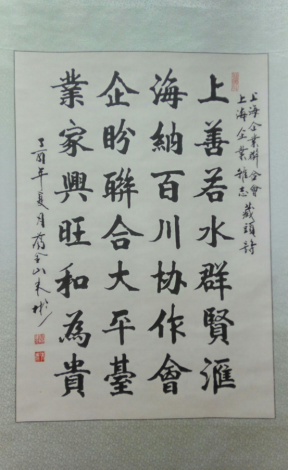 上海企業群合會
上海企業雜志 藏頭詩
上善若水群賢滙
海納百川協作會
企盼聯合大平臺
業家興旺和為貴
丁酉年夏月